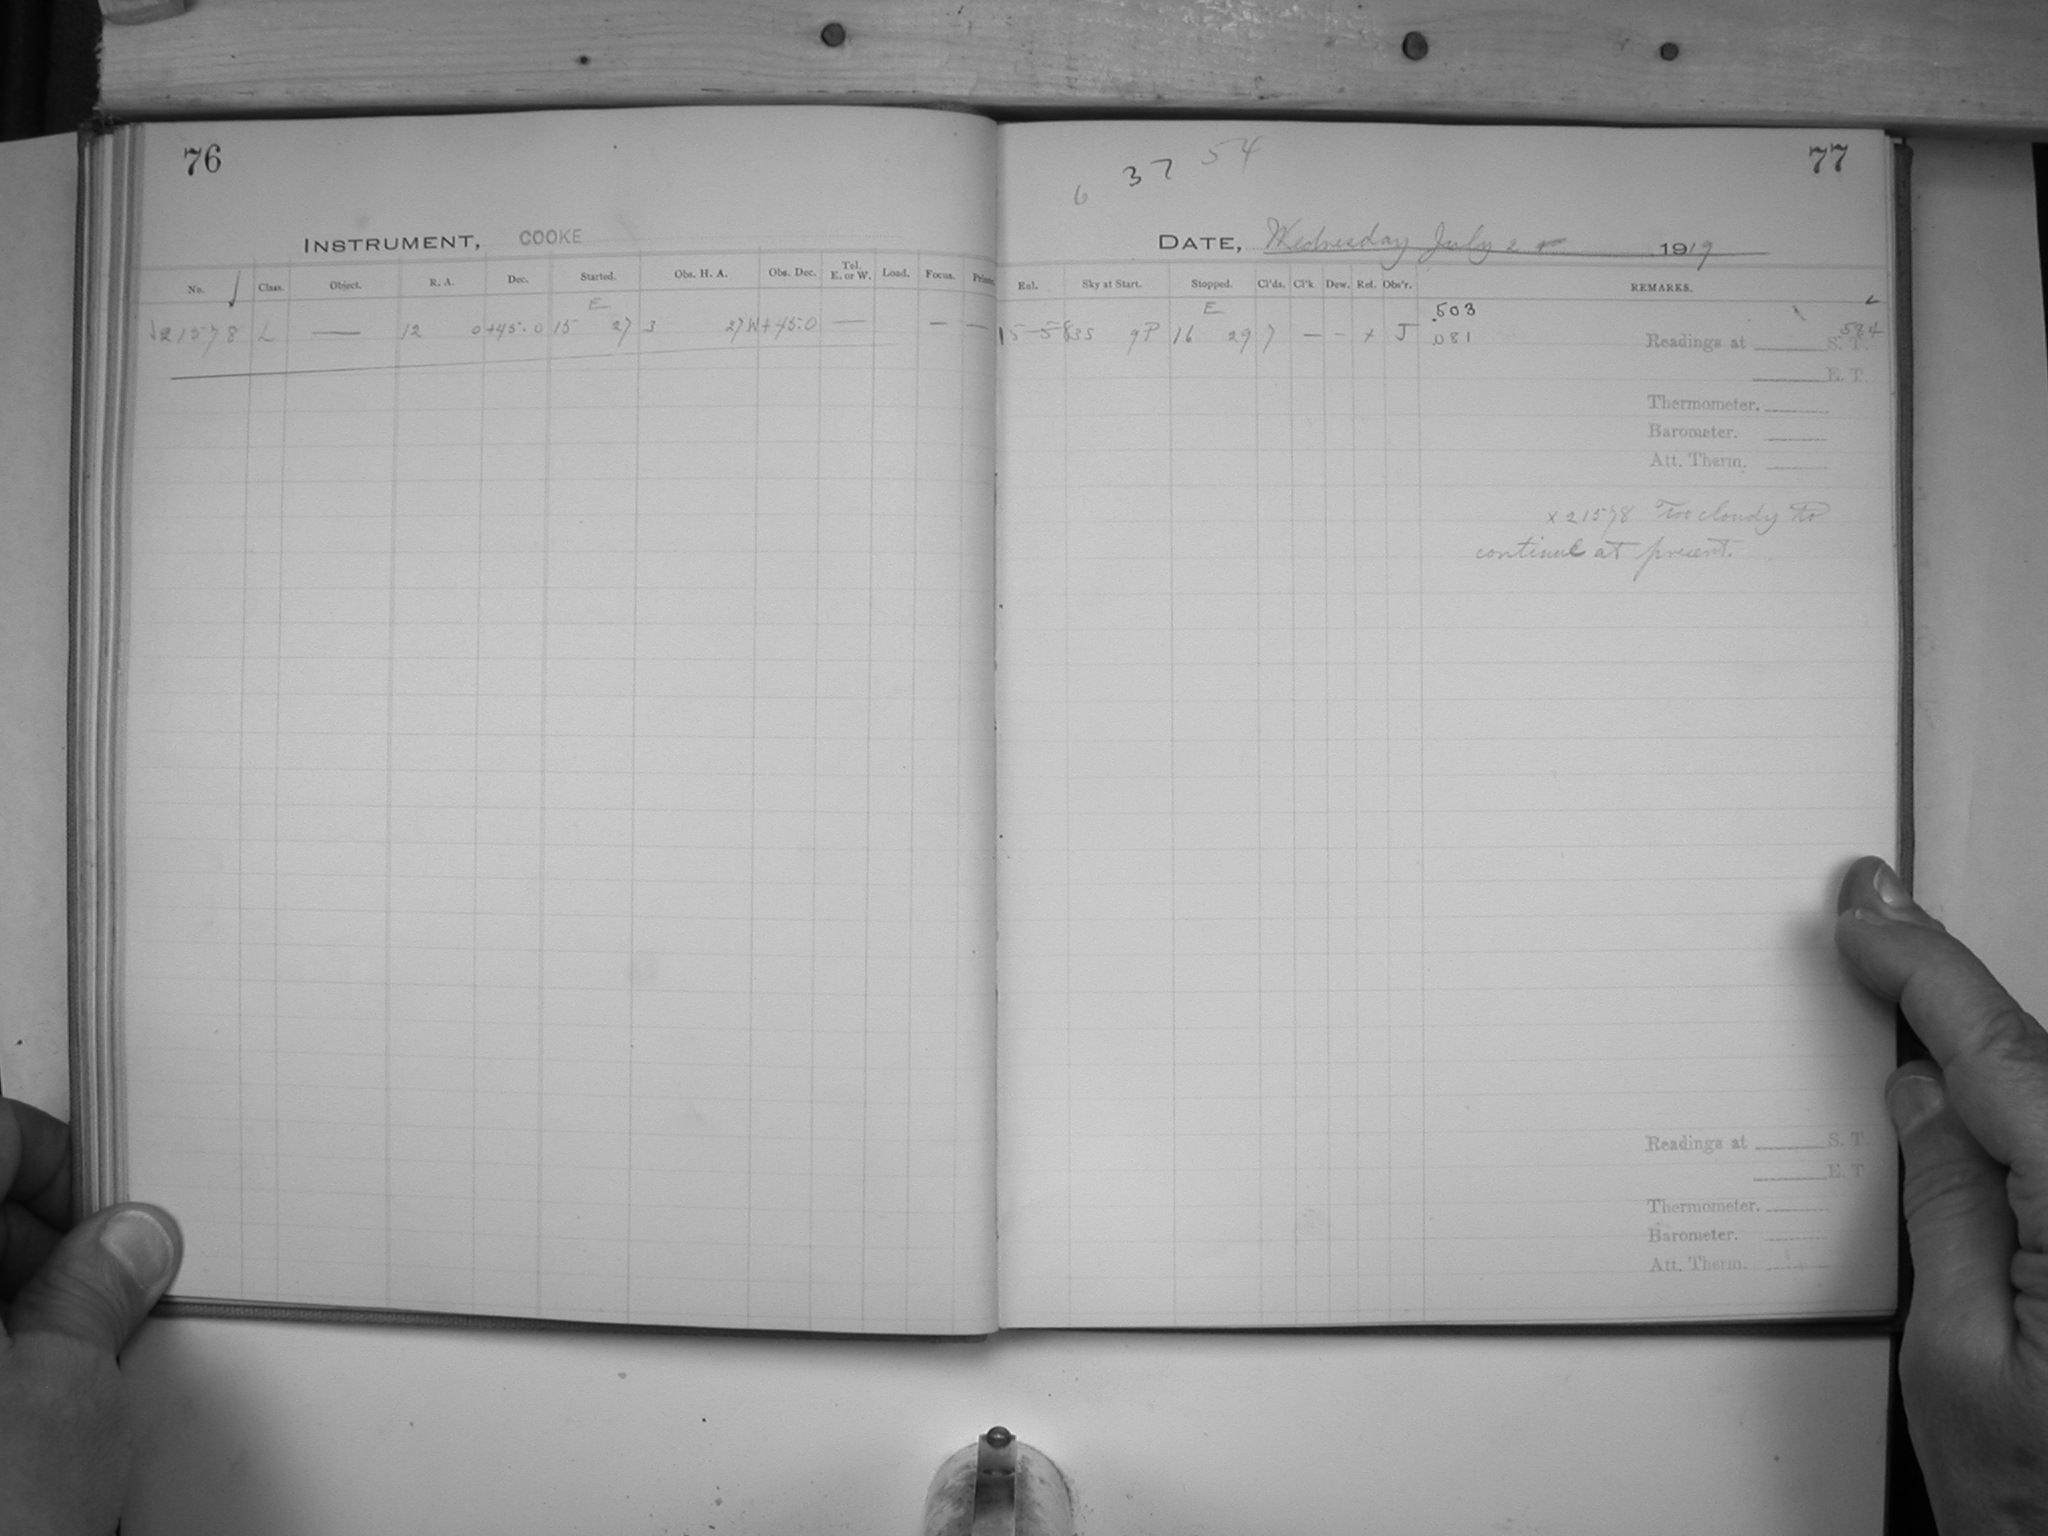 76
INSTRUMENT, COOKE
No. Class. Object. R. A. Dec. Started. Obs. H. A. Obs. Dec. Tel. E. or W. Load. Focus.
E
21578 L — 12 0 +45.0 15 27 3 27W +45.0 — — —
6 37 54
77
DATE, Wednesday July 2 1919
Sky at Start. Stopped. Cl'ds. Cl'k. Dew. Ref. Obs'r. REMARKS.
E .503
9P 16 29 7 — - x J .081
584
Readings at S. T.
E. T.
Thermometer.
Barometer.
Att. Therm.
x 21578 Too cloudy to
continue at present.
Readings at S. T.
E. T
Thermometer.
Barometer.
Att. Therm.